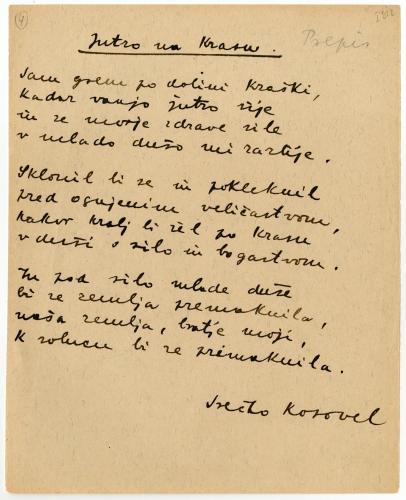 4
Prepis
Jutro na Krasu.
Sam grem po dolini Kraški,
kadar vanjo jutro sije
in se morje zdrave sile
v mlado dušo mi razlije.
Sklonil bi se in pokleknil
pred ognjenim veličastvom,
kakor kralj bi šel po Krasu
v duši s silo in bogastvom.
In pod silo mlade duše
bi se zemlja premaknila,
naša zemlja, bratje moji,
k solncu bi se premaknila.
Srečko Kosovel